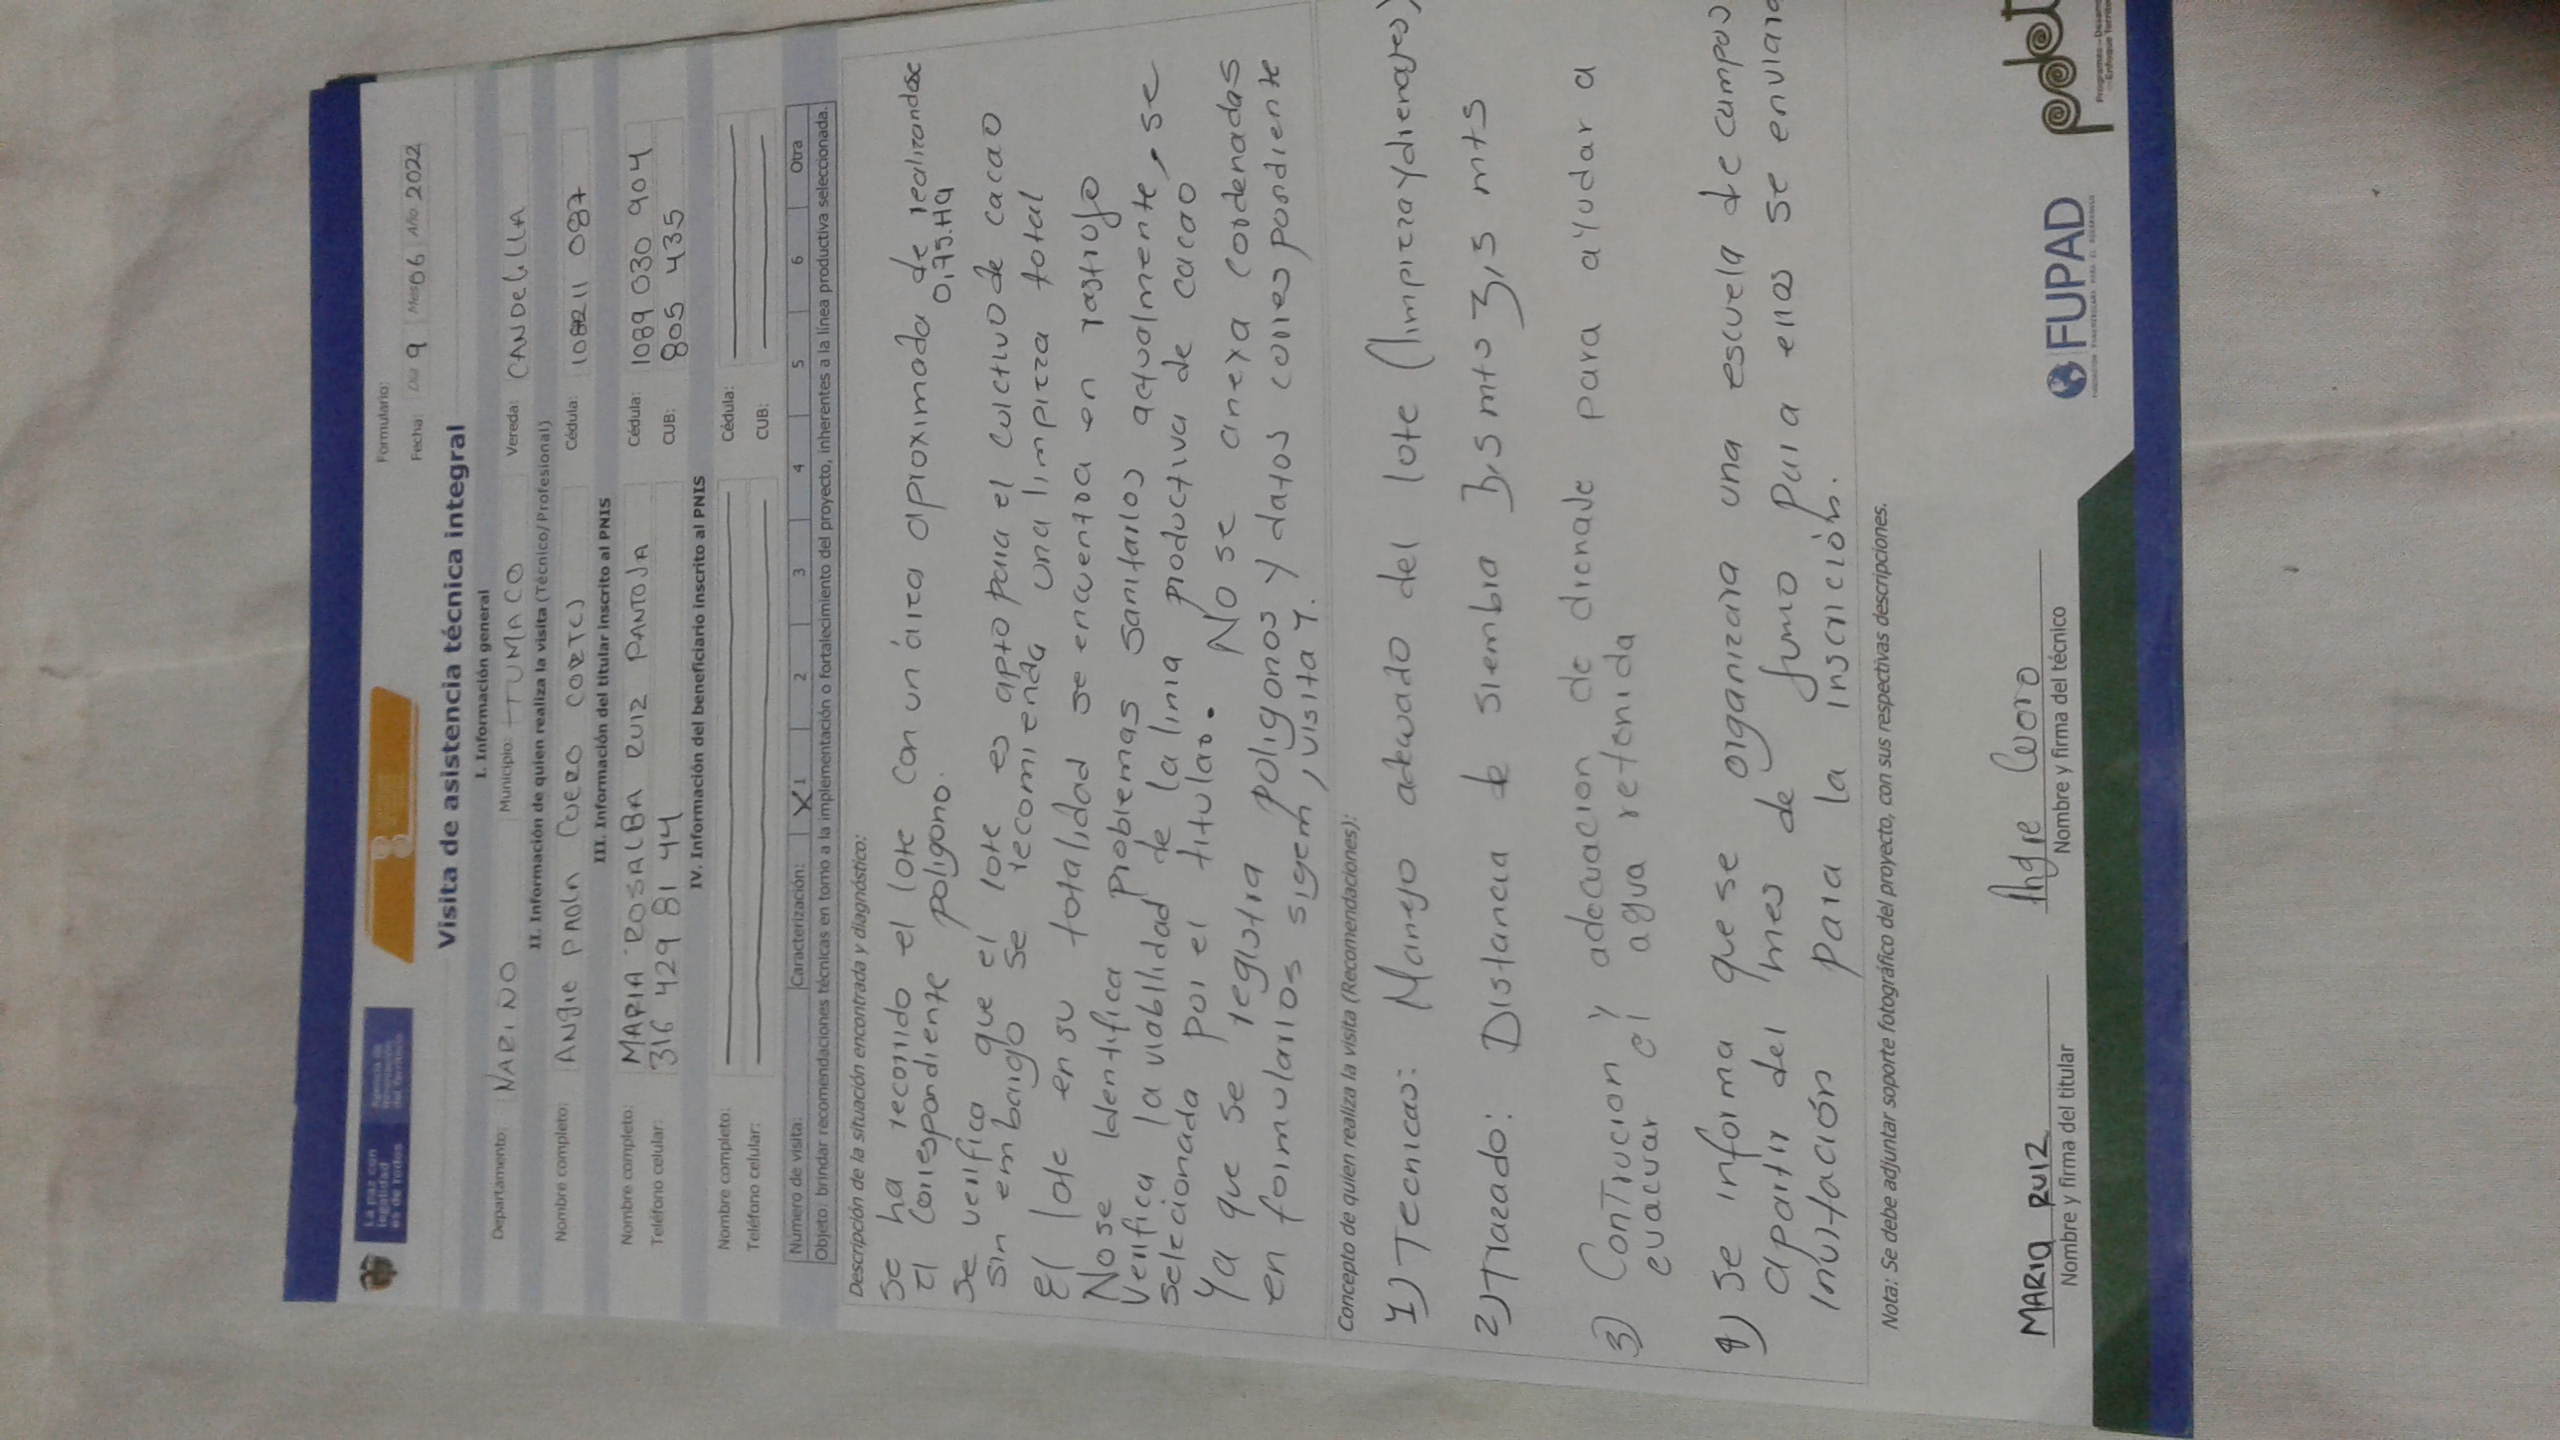 La paz con
legalidad
es de todos
Agencia de
Renovación
del Territorio
Formulario:
Fecha: Día 9 Mes 06 Año 2022
Visita de asistencia técnica integral
I. Información general
Departamento: NARINO Municipio: TUMACO Vereda: CANDELILLA
II. Información de quien realiza la visita (Técnico/Profesional)
Nombre completo: ANGIE PAOLA CUERO CORTES Cédula: 108211 087
III. Información del titular inscrito al PNIS
Nombre completo: MARIA ROSALBA RUIZ PANTOJA Cédula: 1089 030 904
Teléfono celular: 316 429 81 44 CUB: 805 435
IV. Información del beneficiario inscrito al PNIS
Nombre completo: Cédula:
Teléfono celular: CUB:
Número de visita: Caracterización: X 1 2 3 4 5 6 Otra
Objeto: brindar recomendaciones técnicas en torno a la implementación o fortalecimiento del proyecto, inherentes a la línea productiva seleccionada.
Descripción de la situación encontrada y diagnóstico:
Se ha recorrido el lote con un área aproximada de realizandose
el correspondiente poligono. 0,75.Ha
Se verifica que el lote es apto para el cultivo de cacao
sin embargo se recomienda una limpieza total
El lote en su totalidad se encuentra en rastrojo
No se identifica problemas sanitarios actualmente, se
verifica la viabilidad de la linia productiva de cacao
selecionada por el titular. No se anexa cordenadas
Ya que se registra poligonos y datos correspondiente
en formularios sigem, visita 1.
Concepto de quien realiza la visita (Recomendaciones):
1) Tecnicas: Manejo adecuado del lote (limpieza y drenajes)
2) Trazado: Distancia de siembra 3,5 mts 3,5 mts
3) Contrucion y adecuacion de drenaje para ayudar a
evacuar el agua retenida
4) Se informa que se organizara una escuela de campos
apartir del mes de junio para ellos se enviara
invitación para la inscrición.
Nota: Se debe adjuntar soporte fotográfico del proyecto, con sus respectivas descripciones.
MARIA RUIZ Angie Cuero
Nombre y firma del titular Nombre y firma del técnico
FUPAD
FUNDACIÓN PANAMERICANA PARA EL DESARROLLO
pdet